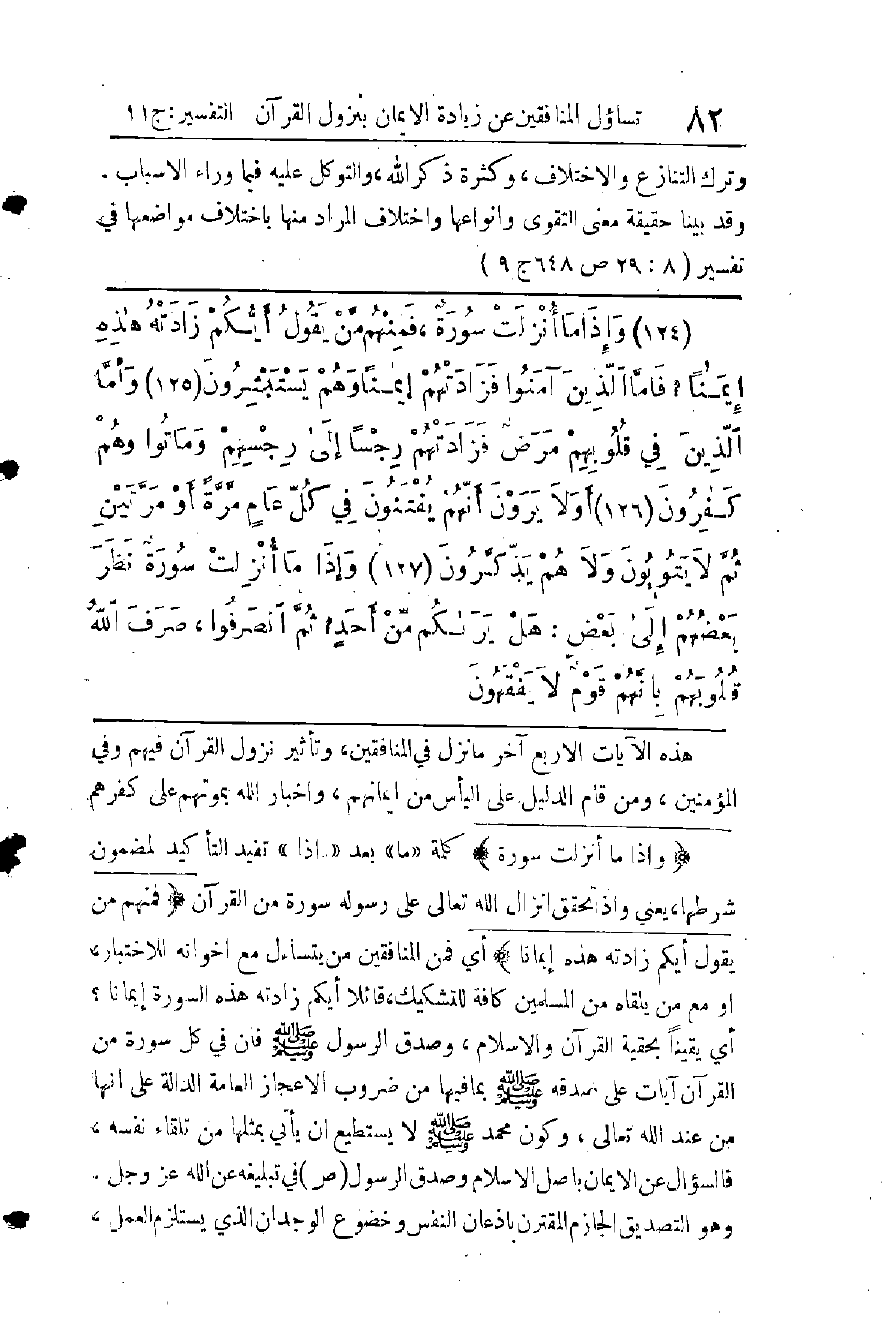 ٨٢ تساؤل المنافقين عن زيادة الايمان بنزول القرآن التفسير: ج ١١
وترك التنازع والاختلاف، وكثرة ذكر الله، والتوكل عليه فيما وراء الاسباب.
وقد بينا حقيقة معنى التقوى وانواعها واختلاف المراد منها باختلاف مواضعها في
تفسير (٨ : ٢٩ ص ٦٤٨ ج ٩)
(١٢٤) وَإِذَا مَا أُنْزِلَتْ سُورَةٌ، فَمِنْهُم مَّنْ يَقُولُ أَيُّكُمْ زَادَتْهُ هٰذِهِ
إِيمَـٰنًا؟ فَامَّا الَّذِينَ آمَنُوا فَزَادَتْهُمْ إِيمَـٰنًا وَهُمْ يَسْتَبْشِرُونَ (١٢٥) وَأَمَّا
الَّذِينَ فِي قُلُوبِهِمْ مَرَضٌ فَزَادَتْهُمْ رِجْسًا إِلَىٰ رِجْسِهِمْ وَمَاتُوا وَهُمْ
كَـٰفِرُونَ (١٢٦) أَوَلَا يَرَوْنَ أَنَّهُمْ يُفْتَنُونَ فِي كُلِّ عَامٍ مَّرَّةً أَوْ مَرَّتَيْنِ
ثُمَّ لَا يَتُوبُونَ وَلَا هُمْ يَذَّكَّرُونَ (١٢٧) وَإِذَا مَا أُنْزِلَتْ سُورَةٌ نَظَرَ
بَعْضُهُمْ إِلَىٰ بَعْضٍ : هَلْ يَرَىٰكُم مِّنْ أَحَدٍ؟ ثُمَّ انْصَرَفُوا، صَرَفَ اللهُ
قُلُوبَهُمْ بِأَنَّهُمْ قَوْمٌ لَا يَفْقَهُونَ
هذه الآيات الاربع آخر مانزل في المنافقين، وتأثير نزول القرآن فيهم وفي
المؤمنين، ومن قام الدليل على اليأس من ايمانهم، واخبار الله بموتهم على كفرهم
﴿ واذا ما أنزلت سورة ﴾ كلمة «ما» بعد «إذا» تفيد التأكيد لمضمون
شرطها، يعني واذا تحقق انزال الله تعالى على رسوله سورة من القرآن ﴿ فمنهم من
يقول أيكم زادته هذه إيمانا ﴾ أي فمن المنافقين من يتساءل مع اخوانه للاختبار،
او مع من يلقاه من المسلمين كافة للتشكيك، قائلا أيكم زادته هذه السورة إيمانا؟
أي يقيناً بحقية القرآن والاسلام، وصدق الرسول ﷺ فان في كل سورة من
القرآن آيات على صدقه ﷺ بمافيها من ضروب الاعجاز العامة الدالة على انها
من عند الله تعالى، وكون محمد ﷺ لا يستطيع ان يأتي بمثلها من تلقاء نفسه،
فالسؤال عن الايمان باصل الاسلام وصدق الرسول (ص) في تبليغه عن الله عز وجل.
وهو التصديق الجازم المقترن باذعان النفس وخضوع الوجدان الذي يستلزم العمل،